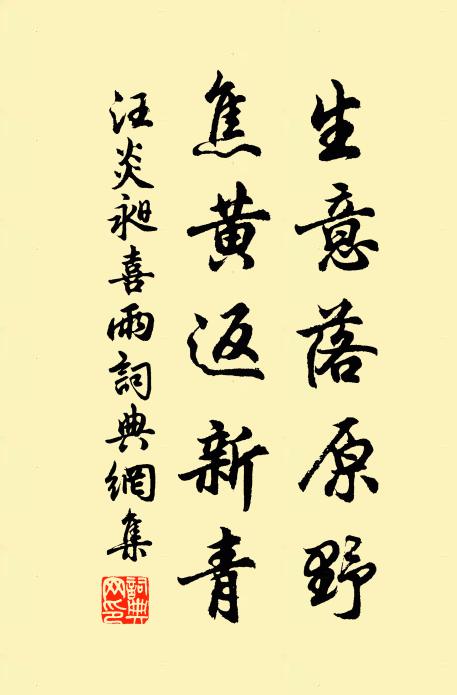 生意落原野
焦黄返新青
汪炎昶喜雨詞典網集
詞典網印